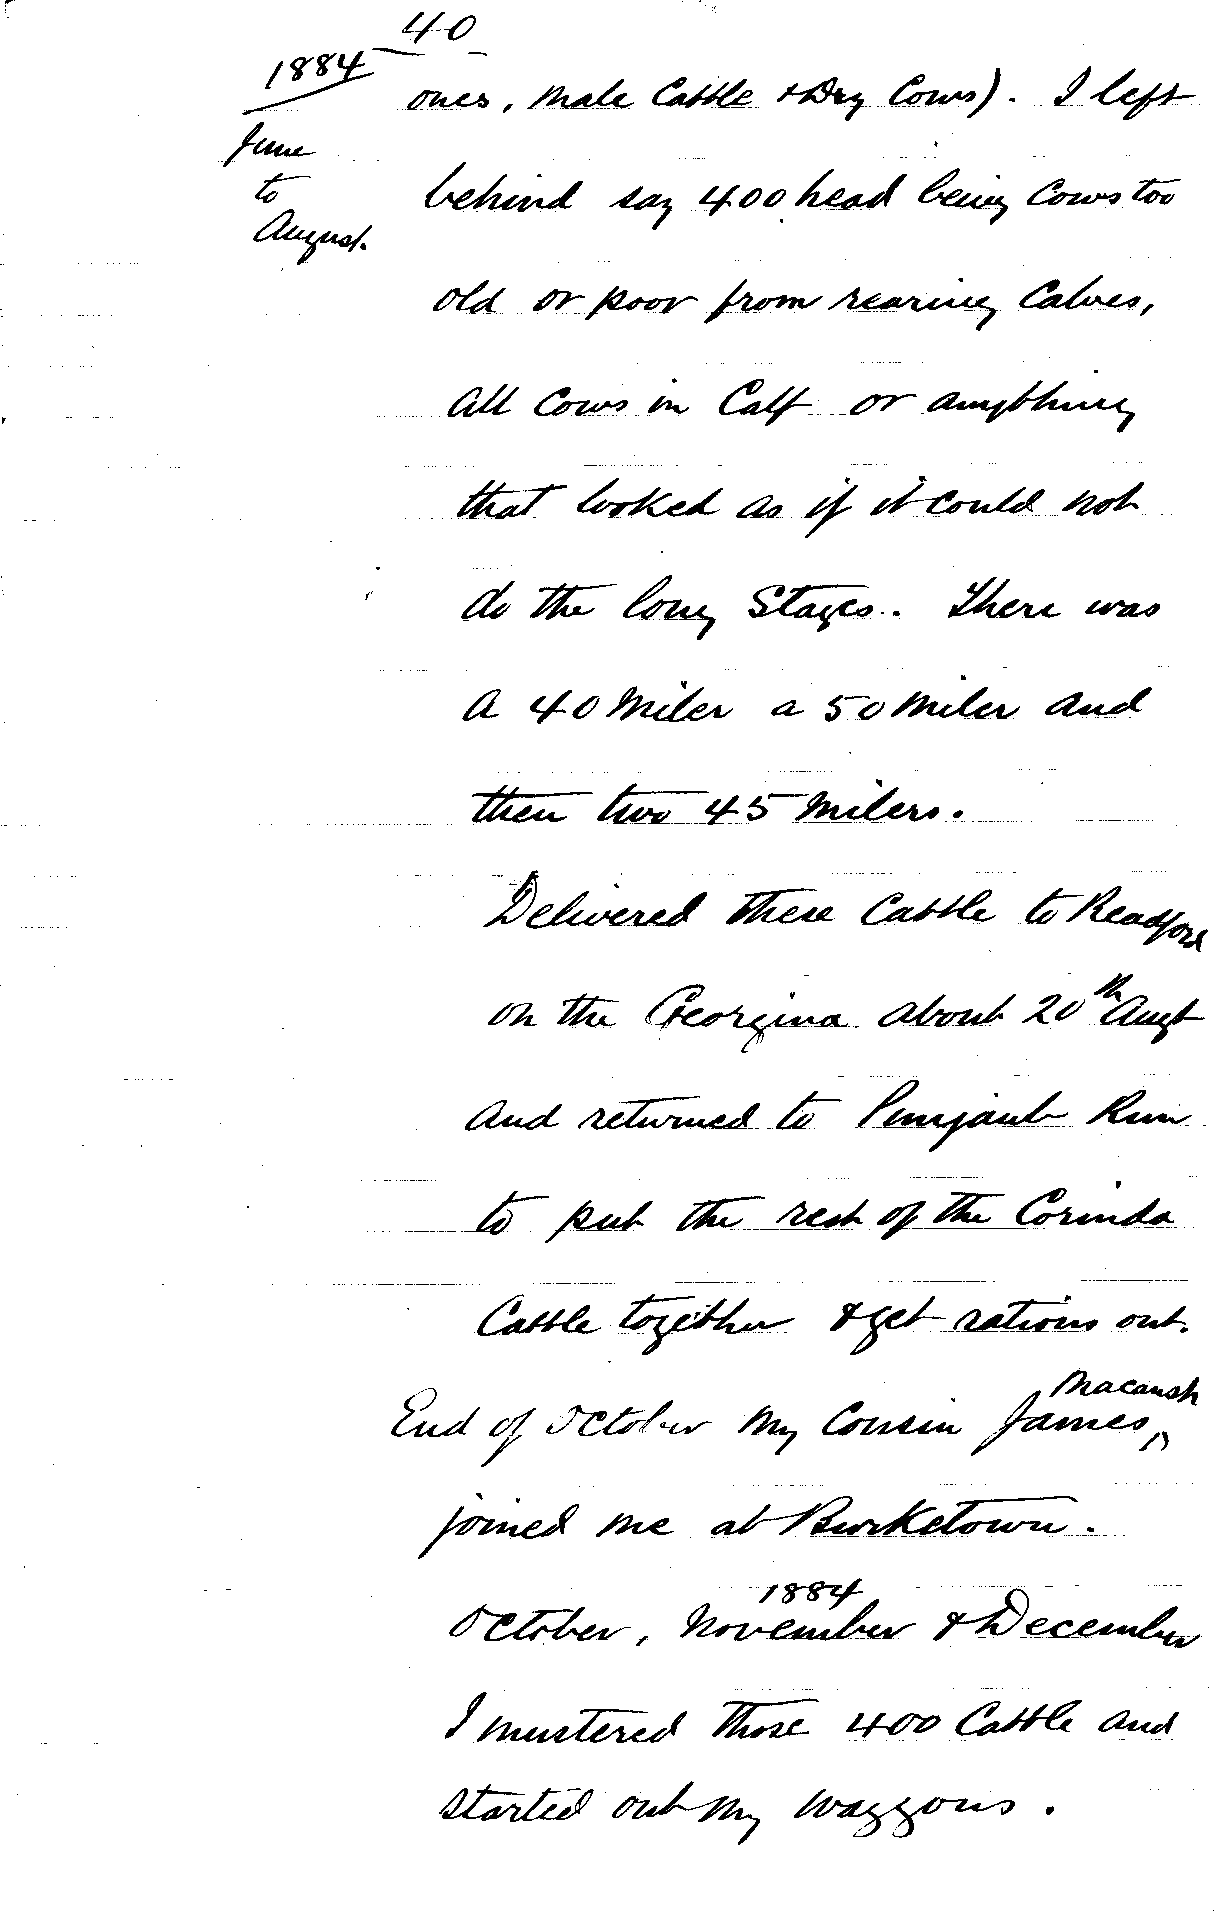 40
1884
June
to
August.
ones, Male Cattle & Dry Cows). I left
behind say 400 head being Cows too
old or poor from rearing Calves,
all Cows in Calf or anything
that looked as if it could not
do the long Stages. There was
a 40 Miler a 50 Miler and
then two 45 Milers.
Delivered these Cattle to Readford
on the Georgina about 20th Augt
and returned to Punjaub Run
to put the rest of the Corinda
Cattle together & get rations out.
Macansh
End of October My Cousin James ^
joined me at Burketown.
1884
October, November & December
I mustered those 400 Cattle and
started out My Waggons.